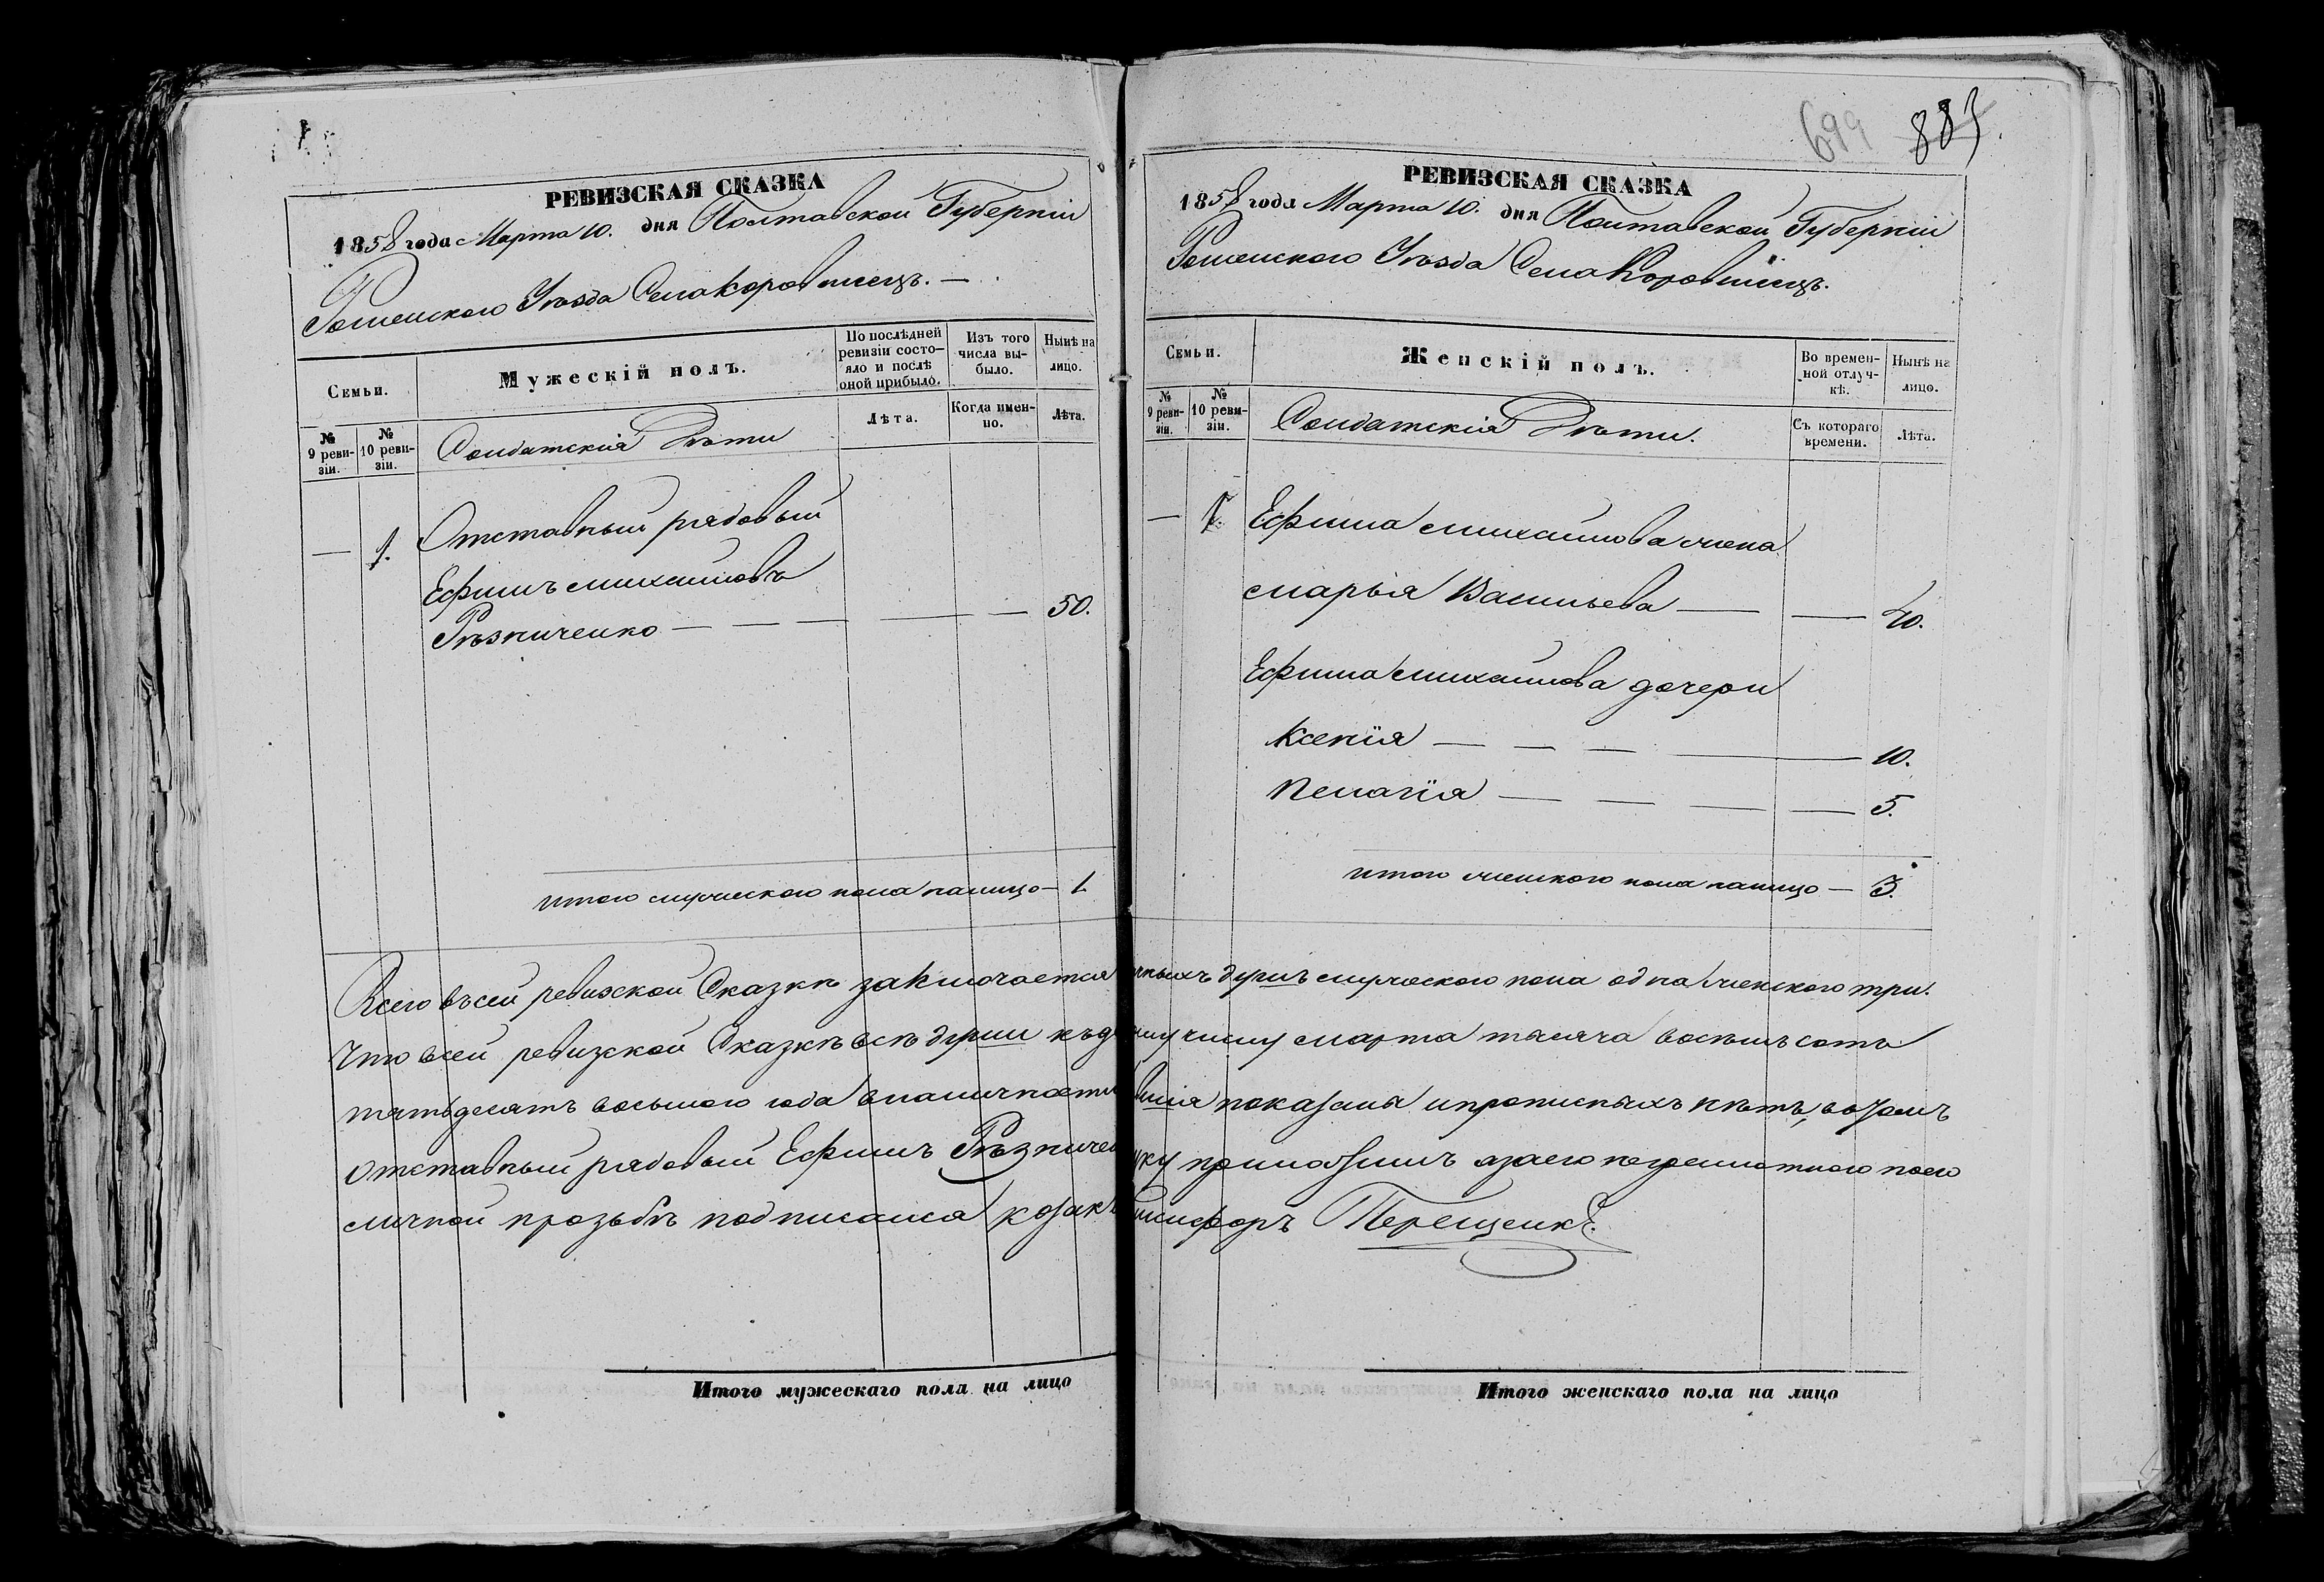 РЕВИЗСКАЯ СКАЗКА
1858 года Марта 10. дня Полтавской Губерніи
Роменского Уѣзда Села Коровинецъ. —
Семьи.
Мужескій полъ.
По послѣдней ревизіи состояло и послѣ оной прибыло.
Изъ того числа выбыло.
Нынѣ на лицо.
№ 9 ревизіи.
№ 10 ревизіи.
Солдатскія Дѣти
Лѣта.
Когда именно.
Лѣта.
— 1. Отставный рядовый
Ефимъ Михайловъ
Рѣзниченко — — — — — 50.
итого мужеского пола налицо — 1
699 883
РЕВИЗСКАЯ СКАЗКА
1858 года Марта 10. дня Полтавской Губерніи
Роменского Уѣзда Села Коровинецъ.
Семьи.
Женскій полъ.
Во временной отлучкѣ.
Нынѣ на лицо.
№ 9 ревизіи.
№ 10 ревизіи.
Солдатскія Дѣти.
Съ котораго времени.
Лѣта.
— 1. Ефима Михайлова жена
Марья Васильева — — 40.
Ефима Михайлова дочери
Ксенія — — — — 10.
Пелагія — — — — 5.
итого женского пола налицо — 3.
Всего въ сей ревизской Сказкѣ заключается душъ мужеского пола одна женского три.
Что въсей ревизской Сказкѣ всѣ души къ числу Марта тысяча восемъ сотъ
пятьдесятъ восьмого года вналичности показаны ипрописныхъ нѣтъ, вотомъ
отставный рядовый Ефимъ Рѣзниченку азаего неграмотного поего
личной прозьбѣ подписался козакъ Перещенко.
Итого мужескаго пола на лицо
Итого женскаго пола на лицо